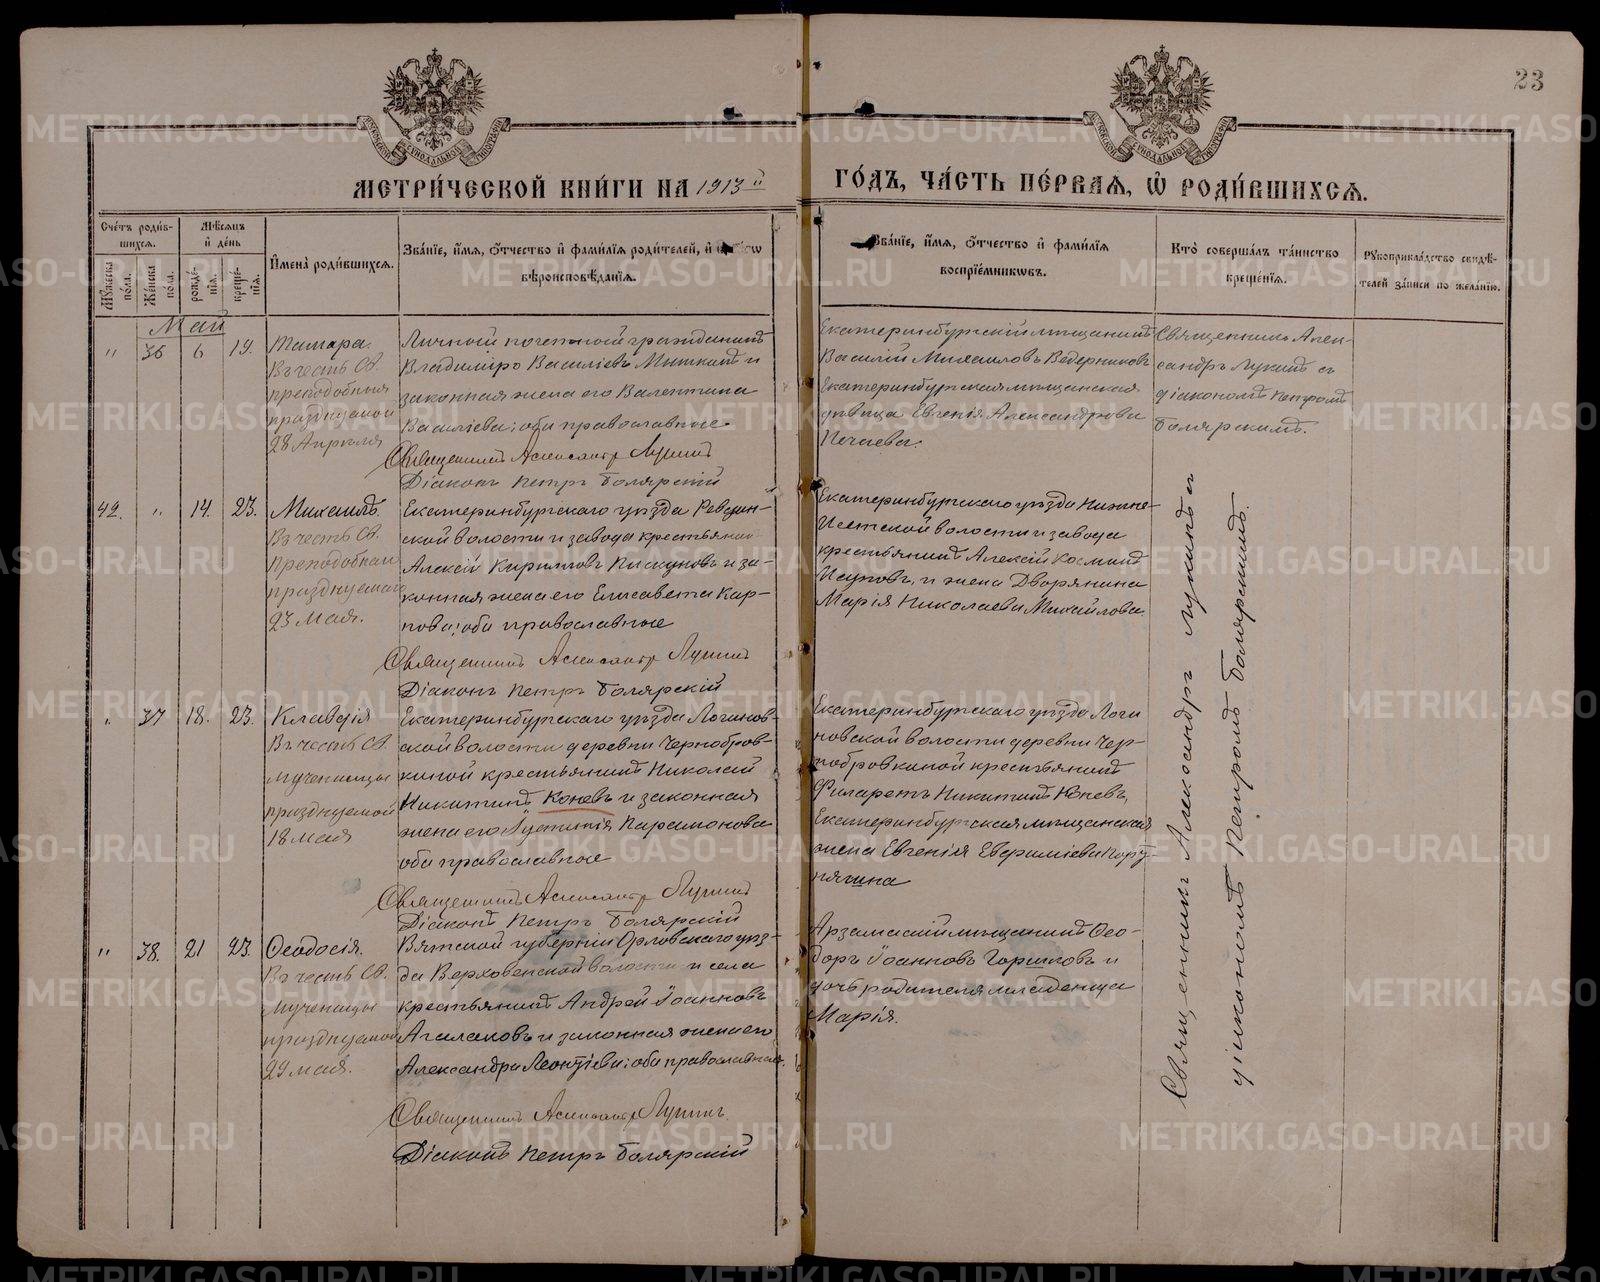 23
МЕТРИ́ЧЕСКОЙ КНИ́ГИ НА 1913й
ГО́ДЪ, ЧА́СТЬ ПЕ́РВАѦ, Ѡ РОДИ́ВШИХСѦ.
Сче́тъ роди́в-
шихсѧ.
Мѣ́сѧцъ
и҆ де́нь
Му́жеска по́ла.
Же́нска по́ла.
рожде́-
нїѧ.
креще́-
нїѧ.
И҆мена̀ роди́вшихсѧ.
Зва́нїе, и҆́мѧ, о҆́тчество и҆ фами́лїѧ роди́телей, и҆
вѣроисповѣ́данїѧ.
Зва́нїе, и҆́мѧ, о҆́тчество и҆ фами́лїѧ
воспрїе́мниковъ.
Кто̀ соверша́лъ та́инство
креще́нїѧ.
Рꙋкоприкла́дство свидѣ́-
телей за́писи по жела́нїю.
Май
" 36 6 19.
Тамара.
Въ честь Св.
преподобныя
празднуемой
28 Апрѣля
Личный почетный гражданинъ
Владиміръ Васильевъ и
законная жена его Валентина
Васильева; оба православные
Священникъ Александръ Лукинъ
Діаконъ Петръ Болярскій
Екатеринбургскій мѣщанинъ
Василій Михаиловъ Ведерниковъ
Екатеринбургская мѣщанская
дѣвица Евгенія Александрова
Нечаева.
Священникъ Алек-
сандръ Лукинъ съ
діакономъ Петромъ
Болярскимъ.
42. " 14. 23.
Михаилъ.
Въ честь Св.
Преподобнаго
празднуемаго
23 Мая.
Екатеринбургскаго уѣзда Ревдин-
ской волости и завода крестьянинъ
Алексій Кирилловъ Пискуновъ и за-
конная жена его Елисавета Кар-
пова; оба православные
Священникъ Александръ Лукинъ
Діаконъ Петръ Болярскій
Екатеринбургскаго уѣзда Нижне-
Исетской волости и завода
крестьянинъ Алексій Косминъ
и жена Дворянина
Марія Николаева Михайлова.
Священникъ Александръ Лукинъ съ
діакономъ Петромъ Болярскимъ.
" 37 18. 23.
Клавдія
Въ честь Св.
мученицы
празднуемой
18 мая
Екатеринбургскаго уѣзда Логинов-
ской волости деревни Чернобров-
киной крестьянинъ Николай
Никитинъ Коневъ и законная
жена его Іустинія Парамонова
оба православные
Священникъ Александръ Лукинъ
Діаконъ Петръ Болярскій
Екатеринбургскаго уѣзда Логи
новской волости деревни Чер-
нобровкиной крестьянинъ
Филаретъ Никитинъ Коневъ,
Екатеринбургская мѣщанская
жена Евгенія
" 38. 21 23.
Ѳеодосія.
Въ честь Св.
мученицы
празднуемой
29 мая.
Вятской губерніи Орловскаго уѣз-
да Верховенской волости и села
крестьянинъ Андрей Іоанновъ
Агалаковъ и законная жена его
Александра Леонтіева; оба православные.
Священникъ Александръ Лукинъ.
Діаконъ Петръ Болярскій
Арзамаскій мѣщанинъ Ѳео-
доръ Іоанновъ Горшковъ и
дочь родителя младенца
Марія.
METRIKI.GASO-URAL.RU